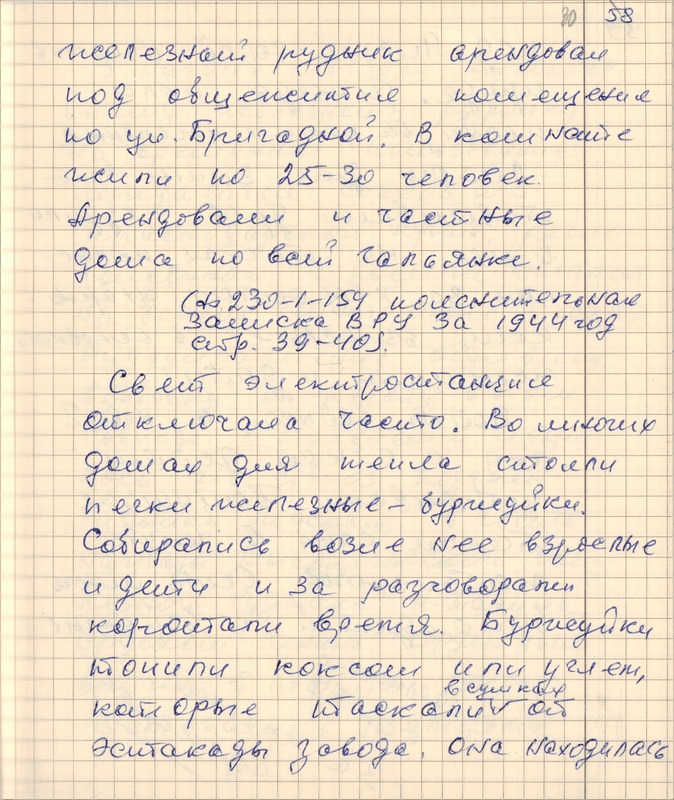 30 58
железный рудник арендовал
под общежития помещения
по ул. Бригадной. В комнате
жили по 25-30 человек.
Арендовали и частные
дома по всей Гальянке.
230-1-154 пояснительная
записка ВРУ за 1944 год
стр. 39-40).
Свет электростанция
отключала часто. Во многих
домах для тепла стояли
печки железные - буржуйки.
Собирались возле нее взрослые
и дети и за разговорами
коротали время. Буржуйки
топили коксом или углем,
в сумках
которые таскали от
эстакады завода. Она находилась